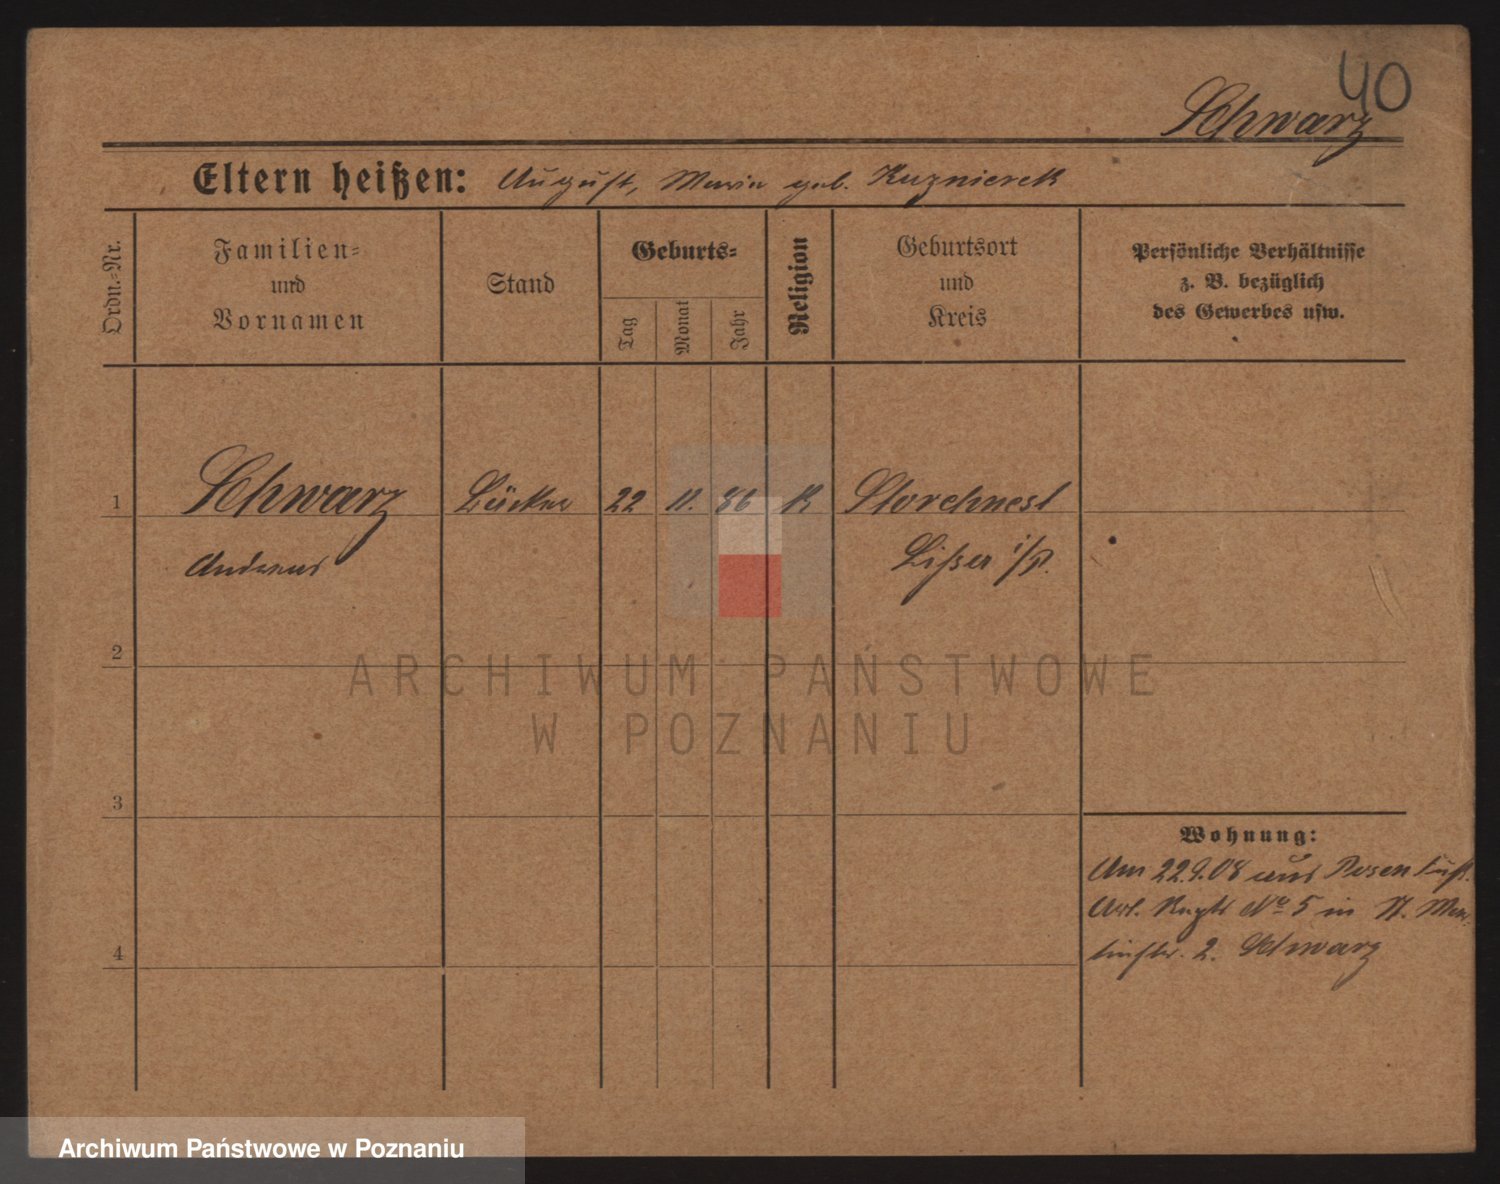 40
Schwarz
Eltern heißen: August, Maria geb. Kuznierek
Ordn.-Nr.
Familien-
und
Vornamen
Stand
Geburts-
Tag
Monat
Jahr
Religion
Geburtsort
und
Kreis
Persönliche Verhältnisse
z. B. bezüglich
des Gewerbes usw.
1 Schwarz Bäcker 22 11. 86 K Storchnest
Andreas Lissa i/P.
2
3
4
Wohnung:
Am 22.9.08 aus Posen
Nº 5 in St. Mar-
tinstr. 2. Schwarz
ARCHIWUM PAŃSTWOWE
W POZNANIU
Archiwum Państwowe w Poznaniu